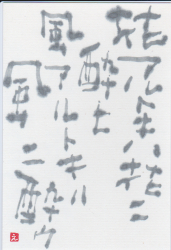 花アルトキハ花ニ
酔ヒ
風アルトキハ
風ニ酔ウ
え